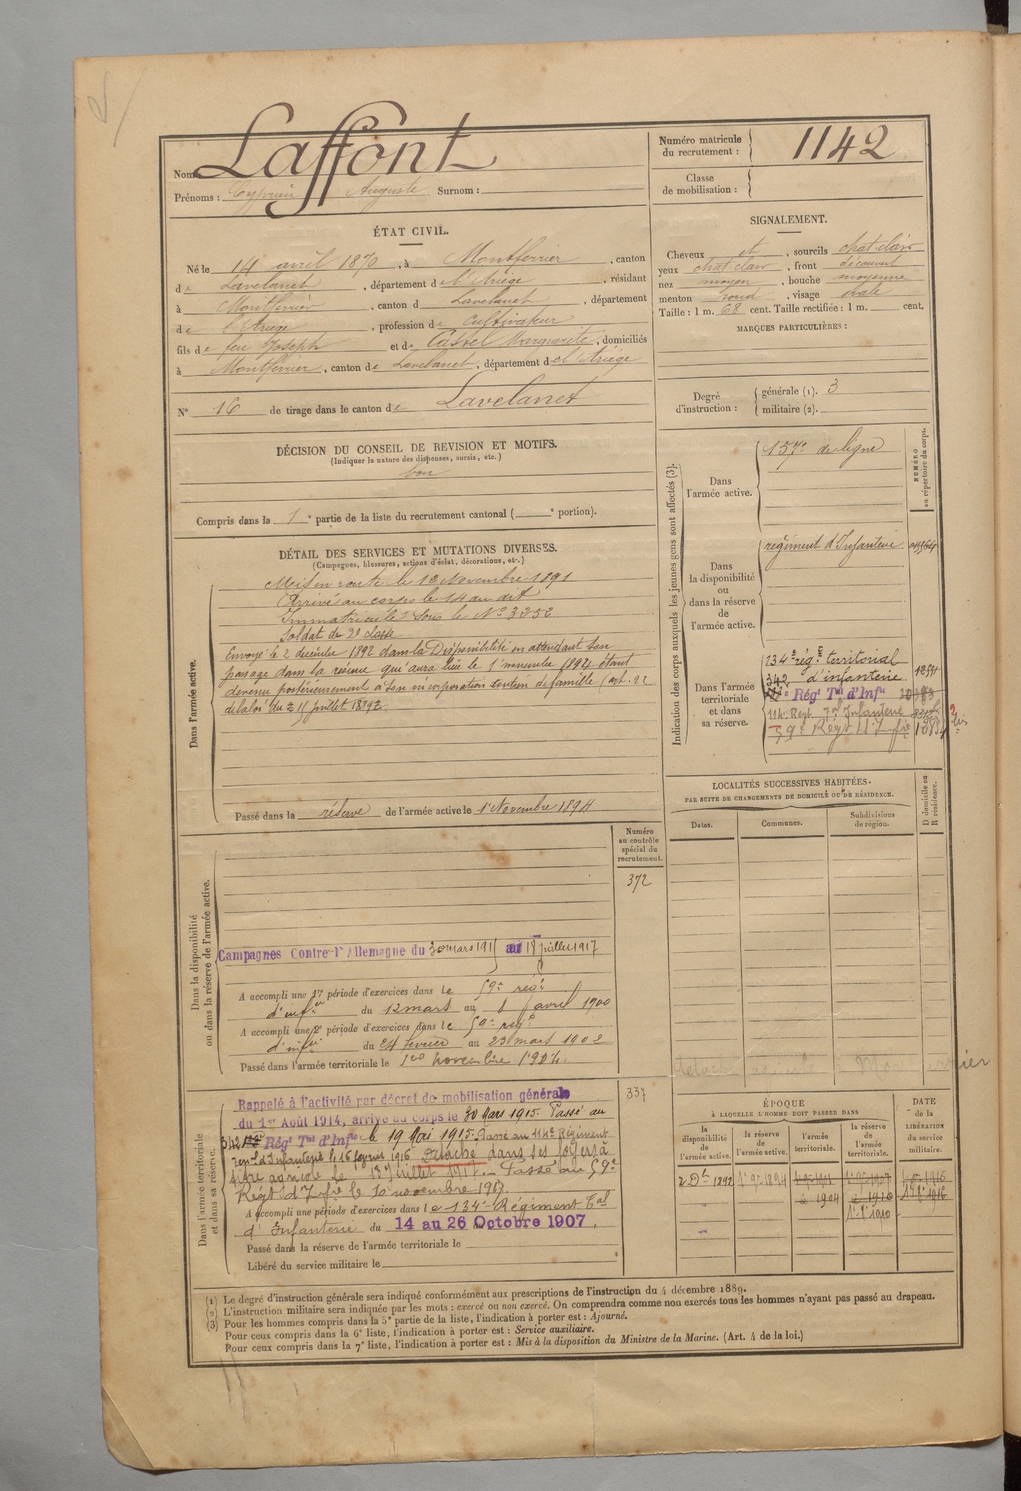 Nom Laffont
Prénoms : Cyprien Auguste Surnom :
Numéro matricule du recrutement : 1142
Classe de mobilisation :
ÉTAT CIVIL.
Né le 14 avril 1870, à Montferrier, canton
de Lavelanet, département de l'Ariège, résidant
à Montferrier, canton d Lavelanet, département
de l'Ariège, profession de Cultivateur
fils de feu Joseph et de Castel Marguerite, domiciliés
à Montferrier, canton de Lavelanet, département de l'Ariège
N° 16 de tirage dans le canton de Lavelanet
SIGNALEMENT.
Cheveux et, sourcils chat. clair
yeux chat. clair, front découvert
nez moyen, bouche moyenne
menton rond, visage ovale
Taille : 1 m. 68 cent. Taille rectifiée : 1 m. cent.
MARQUES PARTICULIÈRES :
Degré d'instruction : générale (1). 3
militaire (2).
DÉCISION DU CONSEIL DE REVISION ET MOTIFS.
(Indiquer la nature des dispenses, sursis, etc.)
bon
Compris dans la 1e partie de la liste du recrutement cantonal ( e portion).
DÉTAIL DES SERVICES ET MUTATIONS DIVERSES.
(Campagnes, blessures, actions d'éclat, décorations, etc.)
Dans l'armée active.
Mis en route le 12 Novembre 1891
Arrivé au corps le 14 au dit
Immatriculé sous le N° 3252
Soldat de 2e classe
Envoyé le 2 décembre 1892 dans la Disponibilité en attendant son
passage dans la réserve qui aura lieu le 1er novembre 1894 étant
devenu postérieurement à son incorporation soutien de famille (art. 22
de la loi du 15 juillet 1889
Passé dans la réserve de l'armée active le 1er Novembre 1894
Indication des corps auxquels les jeunes gens sont affectés (3).
NUMÉRO au répertoire du corps.
Dans l'armée active.
157e de ligne
Dans la disponibilité ou dans la réserve de l'armée active.
régiment d'Infanterie
Dans l'armée territoriale et dans sa réserve.
134e rég. territorial
d'infanterie
342 Régt Tal d'Infie
114e Regt Tal Infanterie
59e Régt d'Infie
LOCALITÉS SUCCESSIVES HABITÉES.
PAR SUITE DE CHANGEMENTS DE DOMICILE OU DE RÉSIDENCE.
Dates. Communes. Subdivisions de région. D domicile ou R résidence.
Dans la disponibilité ou dans la réserve de l'armée active.
Numéro au contrôle spécial du recrutement.
372
Campagnes Contre l'Allemagne du 30 mars 1915 au 18 juillet 1917
A accompli une 1re période d'exercices dans le 59e régt
d'infie du 12 mars au 8 avril 1900
A accompli une 2e période d'exercices dans le 59e régt
d'infie du 24 février au 23 mars 1902
Passé dans l'armée territoriale le 1er novembre 1904.
Dans l'armée territoriale et dans sa réserve.
337
Rappelé à l'activité par décret de mobilisation générale
du 1er Août 1914, arrivé au corps le 30 Mars 1915. Passé au
342 Régt Tal d'Infie le 19 Mai 1915. Passé au 114e Régiment
Tal d'Infanterie le 16 février 1916 Détaché dans ses foyers à
titre agricole le 18 juillet 1917. Passé au 59e
Régt d'Infie le 10 novembre 1917.
A accompli une période d'exercices dans le 134e Régiment Tal
d'Infanterie du 14 au 26 Octobre 1907.
Passé dans la réserve de l'armée territoriale le
Libéré du service militaire le
ÉPOQUE
À LAQUELLE L'HOMME DOIT PASSER DANS
la disponibilité de l'armée active. la réserve de l'armée active. l'armée territoriale. la réserve de l'armée territoriale.
DATE de la LIBÉRATION du service militaire.
2 Dbre 1892 1er 9bre 1894 1904 1910 1916
(1) Le degré d'instruction générale sera indiqué conformément aux prescriptions de l'instruction du 4 décembre 1889.
(2) L'instruction militaire sera indiquée par les mots : exercé ou non exercé. On comprendra comme non exercés tous les hommes n'ayant pas passé au drapeau.
(3) Pour les hommes compris dans la 5e partie de la liste, l'indication à porter est : Ajourné.
Pour ceux compris dans la 6e liste, l'indication à porter est : Service auxiliaire.
Pour ceux compris dans la 7e liste, l'indication à porter est : Mis à la disposition du Ministre de la Marine. (Art. 4 de la loi.)